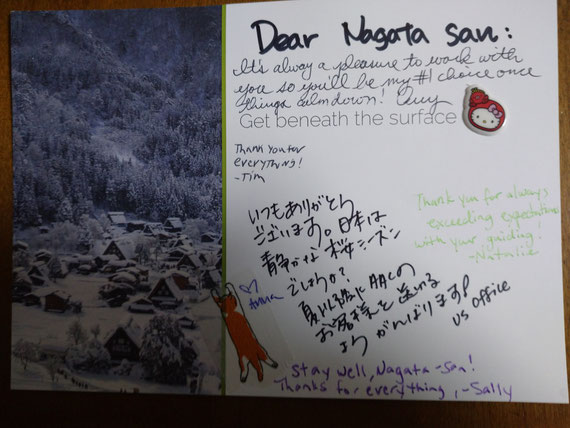 Dear Nagata san:
It's always a pleasure to work with
you so you'll be my #1 choice once
things calm down!
Get beneath the surface
Thank you for
everything!
-Tim
いつもありがとう
ございます。日本は
静かな桜シーズン
でしょうか?
お客様を送れる
ようがんばります
US office
Thank you for always
exceeding expectations
with your guiding!
-Natalie
Anna
Stay well, Nagata-San!
Thanks for everything, -Sally